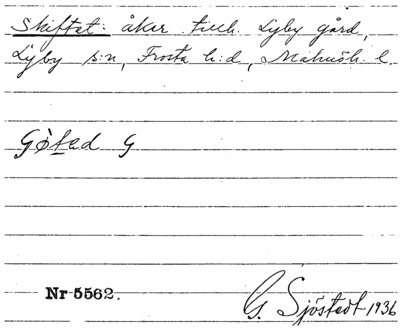 Skiftet: åker till. Lyby gård,
Lyby s:n, Frosta h:d, Malmöh. l.
G G
Nr 5562.
G. Sjöstedt 1936